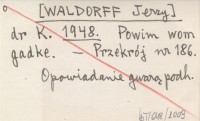 [WALDORFF Jerzy]
dr K. 1948. Powim wom
gadke. – Przekrój nr 186.
Opowiadanie gwarą podh.